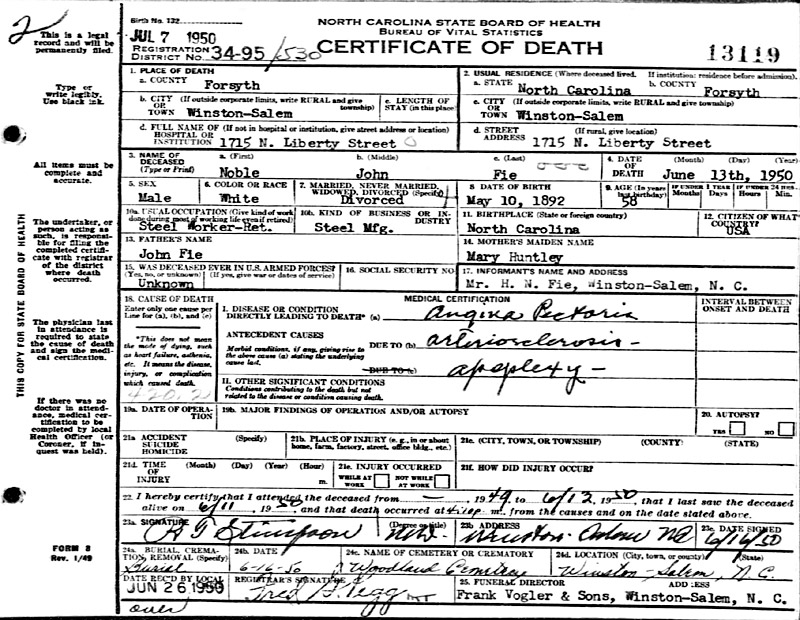 2
Birth No. 132
JUL 7 1950
REGISTRATION DISTRICT No. 34-95 / 530
NORTH CAROLINA STATE BOARD OF HEALTH
BUREAU OF VITAL STATISTICS
CERTIFICATE OF DEATH
13119
This is a legal record and will be permanently filed.
Type or write legibly. Use black ink.
All items must be complete and accurate.
The undertaker, or person acting as such, is responsible for filing the completed certificate with registrar of the district where death occurred.
The physician last in attendance is required to state the cause of death and sign the medical certification.
If there was no doctor in attendance, medical certification to be completed by local Health Officer (or Coroner, if inquest was held).
THIS COPY FOR STATE BOARD OF HEALTH
FORM 8
Rev. 1/49
1. PLACE OF DEATH
a. COUNTY Forsyth
b. CITY (If outside corporate limits, write RURAL and give township) OR TOWN Winston-Salem
c. LENGTH OF STAY (in this place)
d. FULL NAME OF (If not in hospital or institution, give street address or location) HOSPITAL OR INSTITUTION 1715 N. Liberty Street
2. USUAL RESIDENCE (Where deceased lived. If institution: residence before admission).
a. STATE North Carolina b. COUNTY Forsyth
c. CITY (If outside corporate limits, write RURAL and give township) OR TOWN Winston-Salem
d. STREET ADDRESS (If rural, give location) 1715 N. Liberty Street
3. NAME OF DECEASED (Type or Print)
a. (First) Noble
b. (Middle) John
c. (Last) Fie
4. DATE OF DEATH (Month) (Day) (Year) June 13th, 1950
5. SEX Male
6. COLOR OR RACE White
7. MARRIED, NEVER MARRIED, WIDOWED, DIVORCED (Specify) Divorced
8 DATE OF BIRTH May 10, 1892
9. AGE (In years last birthday) 58
IF UNDER 1 YEAR Months Days
IF UNDER 24 HRS. Hours Min.
10a. USUAL OCCUPATION (Give kind of work done during most of working life, even if retired) Steel Worker-Ret.
10b. KIND OF BUSINESS OR INDUSTRY Steel Mfg.
11. BIRTHPLACE (State or foreign country) North Carolina
12. CITIZEN OF WHAT COUNTRY? USA
13. FATHER'S NAME John Fie
14. MOTHER'S MAIDEN NAME Mary Huntley
15. WAS DECEASED EVER IN U.S. ARMED FORCES? (Yes, no, or unknown) (If yes, give war or dates of service) Unknown
16. SOCIAL SECURITY NO
17. INFORMANT'S NAME AND ADDRESS Mr. H. N. Fie, Winston-Salem, N. C.
18. CAUSE OF DEATH
Enter only one cause per line for (a), (b), and (c)
*This does not mean the mode of dying, such as heart failure, asthenia, etc. It means the disease, injury, or complication which caused death.
420.2
MEDICAL CERTIFICATION
INTERVAL BETWEEN ONSET AND DEATH
I. DISEASE OR CONDITION DIRECTLY LEADING TO DEATH* (a) Angina Pectoris
ANTECEDENT CAUSES
Morbid conditions, if any, giving rise to the above cause (a) stating the underlying cause last.
DUE TO (b) arteriosclerosis -
DUE TO (c) apoplexy -
II. OTHER SIGNIFICANT CONDITIONS
Conditions contributing to the death but not related to the disease or condition causing death.
19a. DATE OF OPERATION
19b. MAJOR FINDINGS OF OPERATION AND/OR AUTOPSY
20. AUTOPSY? YES NO
21a ACCIDENT SUICIDE HOMICIDE (Specify)
21b. PLACE OF INJURY (e. g., in or about home, farm, factory, street, office bldg., etc.)
21c. (CITY, TOWN, OR TOWNSHIP) (COUNTY) (STATE)
21d. TIME OF INJURY (Month) (Day) (Year) (Hour) m.
21e. INJURY OCCURRED WHILE AT WORK NOT WHILE AT WORK
21f. HOW DID INJURY OCCUR?
22. I hereby certify that I attended the deceased from - , 1949 to 6/13, 1950, that I last saw the deceased
alive on 6/11, 1950, and that death occurred at m., from the causes and on the date stated above.
23a. SIGNATURE (Degree or title)
23b. ADDRESS Winston-Salem NC
23c. DATE SIGNED 6/16/50
24a. BURIAL, CREMATION, REMOVAL (Specify) Burial
24b. DATE 6-16-50
24c. NAME OF CEMETERY OR CREMATORY Woodland Cemetery
24d. LOCATION (City, town, or county) (State) Winston-Salem, N. C.
DATE REC'D BY LOCAL JUN 26 1950
REGISTRAR'S SIGNATURE Fred G. Pegg
25. FUNERAL DIRECTOR ADDRESS
Frank Vogler & Sons, Winston-Salem, N. C.
over